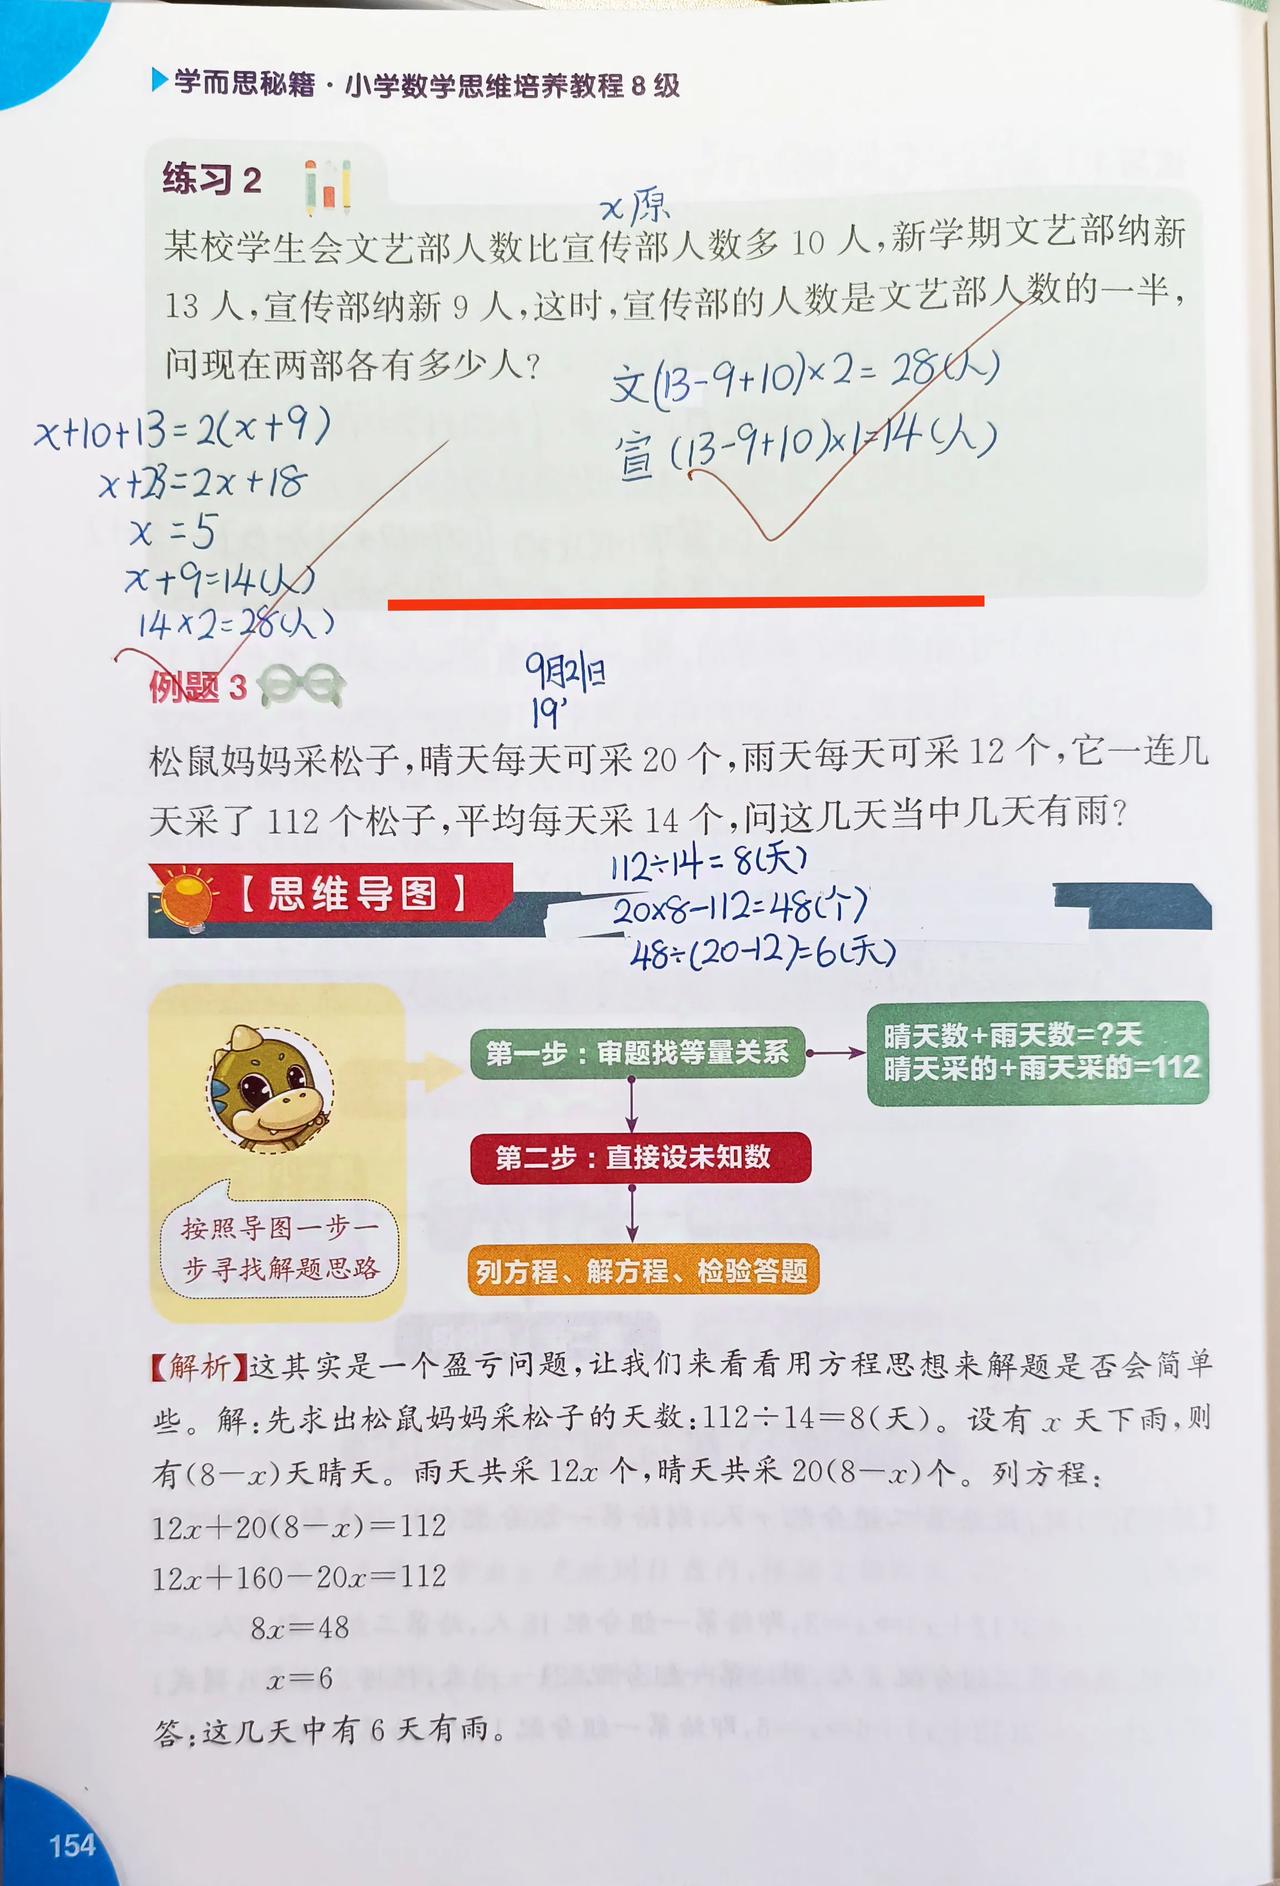 学而思秘籍·小学数学思维培养教程8级
练习2
x原
某校学生会文艺部人数比宣传部人数多10人,新学期文艺部纳新
13人,宣传部纳新9人,这时,宣传部的人数是文艺部人数的一半,
问现在两部各有多少人?
文(13-9+10)×2=28(人)
宣(13-9+10)×1=14(人)
x+10+13=2(x+9)
x+23=2x+18
x=5
x+9=14(人)
14×2=28(人)
例题3
9月21日
19'
松鼠妈妈采松子,晴天每天可采20个,雨天每天可采12个,它一连几
天采了112个松子,平均每天采14个,问这几天当中几天有雨?
112÷14=8(天)
20×8-112=48(个)
48÷(20-12)=6(天)
【思维导图】
第一步:审题找等量关系
晴天数+雨天数=?天
晴天采的+雨天采的=112
第二步:直接设未知数
按照导图一步一
步寻找解题思路
列方程、解方程、检验答题
【解析】这其实是一个盈亏问题,让我们来看看用方程思想来解题是否会简单
些。解:先求出松鼠妈妈采松子的天数:112÷14=8(天)。设有x天下雨,则
有(8-x)天晴天。雨天共采12x个,晴天共采20(8-x)个。列方程:
12x+20(8-x)=112
12x+160-20x=112
8x=48
x=6
答:这几天中有6天有雨。
154